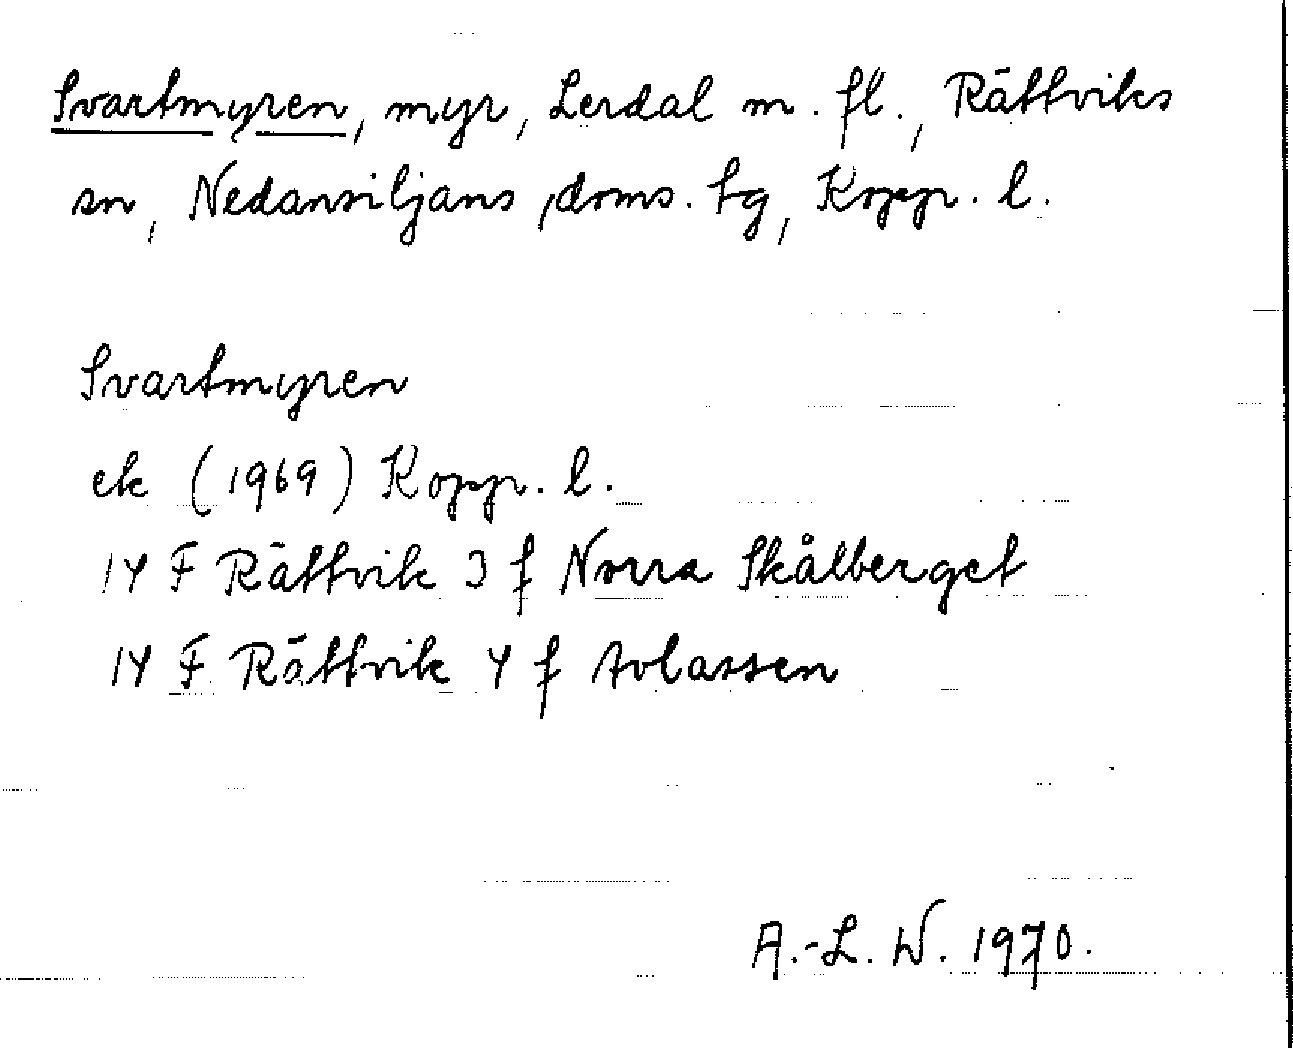 Svartmyren, myr, Lerdal m. fl., Rättviks
sn, Nedansiljans doms. tg, Kopp. l.
Svartmyren
ek (1969) Kopp. l.
14 F Rättvik 3 f Norra Skålberget
14 F Rättvik 4 f Avlassen
A.-L. W. 1970.